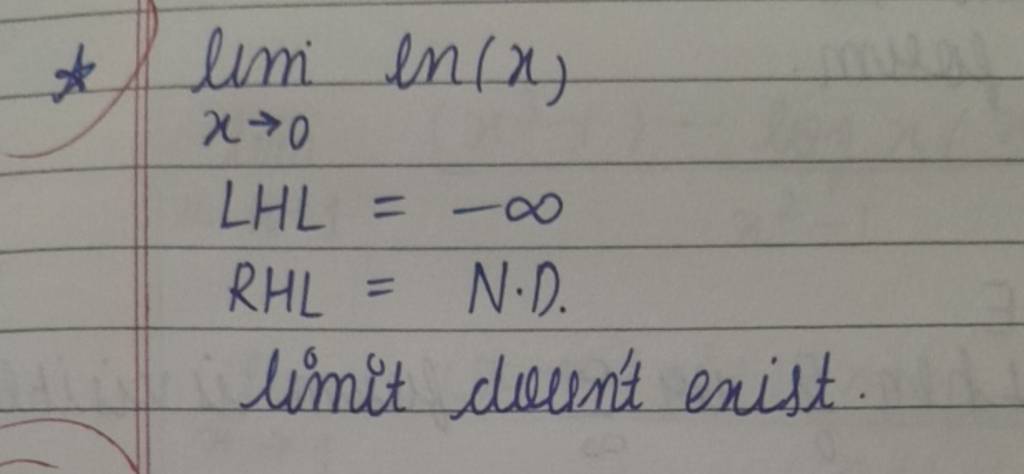 * lim ln(x)
x→0
LHL = -∞
RHL = N.D.
limit doesn't exist.